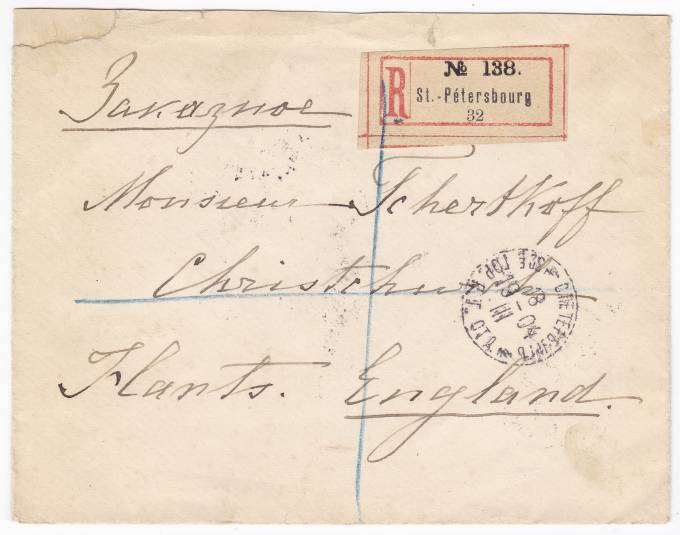 Заказное
№ 138.
R St.-Pétersbourg
32
Monsieur Tchertkoff
Christchurch
Hants. England.
С.ПЕТЕРБУРГЪ
18 III 04